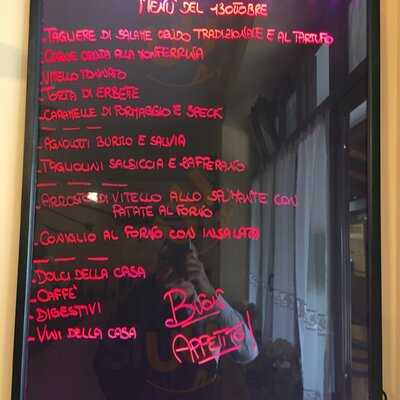 MENÙ DEL 13 OTTOBRE
- TAGLIERE DI SALAME CRUDO TRADIZIONALE E AL TARTUFO
- CARNE CRUDA ALLA MONFERRINA
- VITELLO TONNATO
- TORTA DI ERBETTE
- CARAMELLE DI FORMAGGIO E SPECK
- AGNOLOTTI BURRO E SALVIA
- TAGLIOLINI SALSICCIA E ZAFFERANO
- ARROSTO DI VITELLO ALLO SPUMANTE CON
PATATE AL FORNO
- CONIGLIO AL FORNO CON INSALATA
- DOLCI DELLA CASA
- CAFFÈ
- DIGESTIVI
- VINI DELLA CASA
BUON
APPETITO!